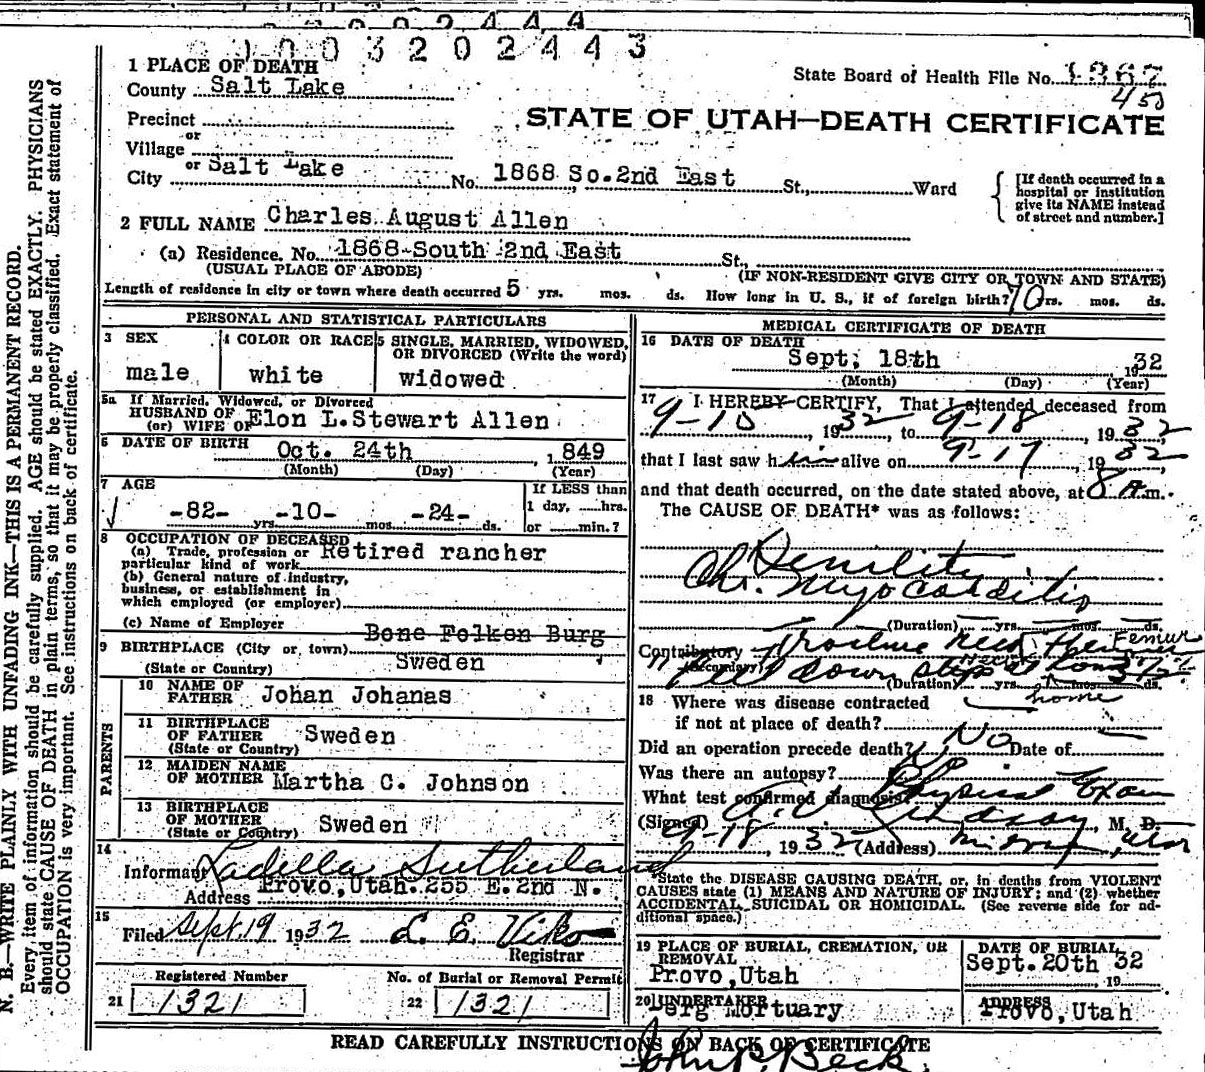 0003202443
1 PLACE OF DEATH
County Salt Lake
State Board of Health File No. 1367
450
Precinct
or
Village
STATE OF UTAH—DEATH CERTIFICATE
or
City Salt Lake No. 1868 So. 2nd East St., Ward
[If death occurred in a hospital or institution give its NAME instead of street and number.]
2 FULL NAME Charles August Allen
(a) Residence. No. 1868 South 2nd East St.,
(USUAL PLACE OF ABODE) (IF NON-RESIDENT GIVE CITY OR TOWN AND STATE)
Length of residence in city or town where death occurred 5 yrs. mos. ds. How long in U. S., if of foreign birth? 70 yrs. mos. ds.
PERSONAL AND STATISTICAL PARTICULARS
3 SEX
male
4 COLOR OR RACE
white
5 SINGLE, MARRIED, WIDOWED, OR DIVORCED (Write the word)
widowed
5a If Married, Widowed, or Divorced
HUSBAND OF
(or) WIFE OF Elon L. Stewart Allen
6 DATE OF BIRTH Oct. 24th, 1849
(Month) (Day) (Year)
7 AGE
-82- yrs. -10- mos. -24- ds.
If LESS than
1 day, ......hrs.
or ......min.?
8 OCCUPATION OF DECEASED
(a) Trade, profession or particular kind of work Retired rancher
(b) General nature of industry,
business, or establishment in
which employed (or employer)
(c) Name of Employer
Bone Folken Burg
9 BIRTHPLACE (City or town)
(State or Country) Sweden
PARENTS
10 NAME OF FATHER Johan Johanas
11 BIRTHPLACE OF FATHER (State or Country) Sweden
12 MAIDEN NAME OF MOTHER Martha C. Johnson
13 BIRTHPLACE OF MOTHER (State or Country) Sweden
14 Informant Ladella Sutherland
Address Provo, Utah. 255 E. 2nd N.
15 Filed Sept. 19 1932 L. E. Viko
Registrar
Registered Number
21 1321
No. of Burial or Removal Permit
22 1321
MEDICAL CERTIFICATE OF DEATH
16 DATE OF DEATH
Sept; 18th 1932
(Month) (Day) (Year)
17 I HEREBY CERTIFY, That I attended deceased from
9-10, 1932, to 9-18, 1932,
that I last saw him alive on 9-17, 1932,
and that death occurred, on the date stated above, at 8 A.m.
The CAUSE OF DEATH* was as follows:
Senility
Chr. Myocarditis
(Duration) yrs. mos. ds.
Contributory Fracture Neck Femur
(Secondary) Fell down steps at home
(Duration) yrs. mos. ds.
18 Where was disease contracted
if not at place of death? home
Did an operation precede death? No Date of
Was there an autopsy? No
What test confirmed diagnosis? Physical Exam
(Signed) Lindsay, M. D.
9-18, 1932 (Address) Midvale, Utah
*State the DISEASE CAUSING DEATH, or, in deaths from VIOLENT
CAUSES state (1) MEANS AND NATURE OF INJURY; and (2) whether
ACCIDENTAL, SUICIDAL OR HOMICIDAL. (See reverse side for additional space.)
19 PLACE OF BURIAL, CREMATION, OR REMOVAL
Provo, Utah
DATE OF BURIAL
Sept. 20th 1932
20 UNDERTAKER
Berg Mortuary
ADDRESS
Provo, Utah
READ CAREFULLY INSTRUCTIONS ON BACK OF CERTIFICATE
John P. Beck.
N. B.—WRITE PLAINLY WITH UNFADING INK—THIS IS A PERMANENT RECORD.
Every item of information should be carefully supplied. AGE should be stated EXACTLY. PHYSICIANS
should state CAUSE OF DEATH in plain terms, so that it may be properly classified. Exact statement of
OCCUPATION is very important. See instructions on back of certificate.